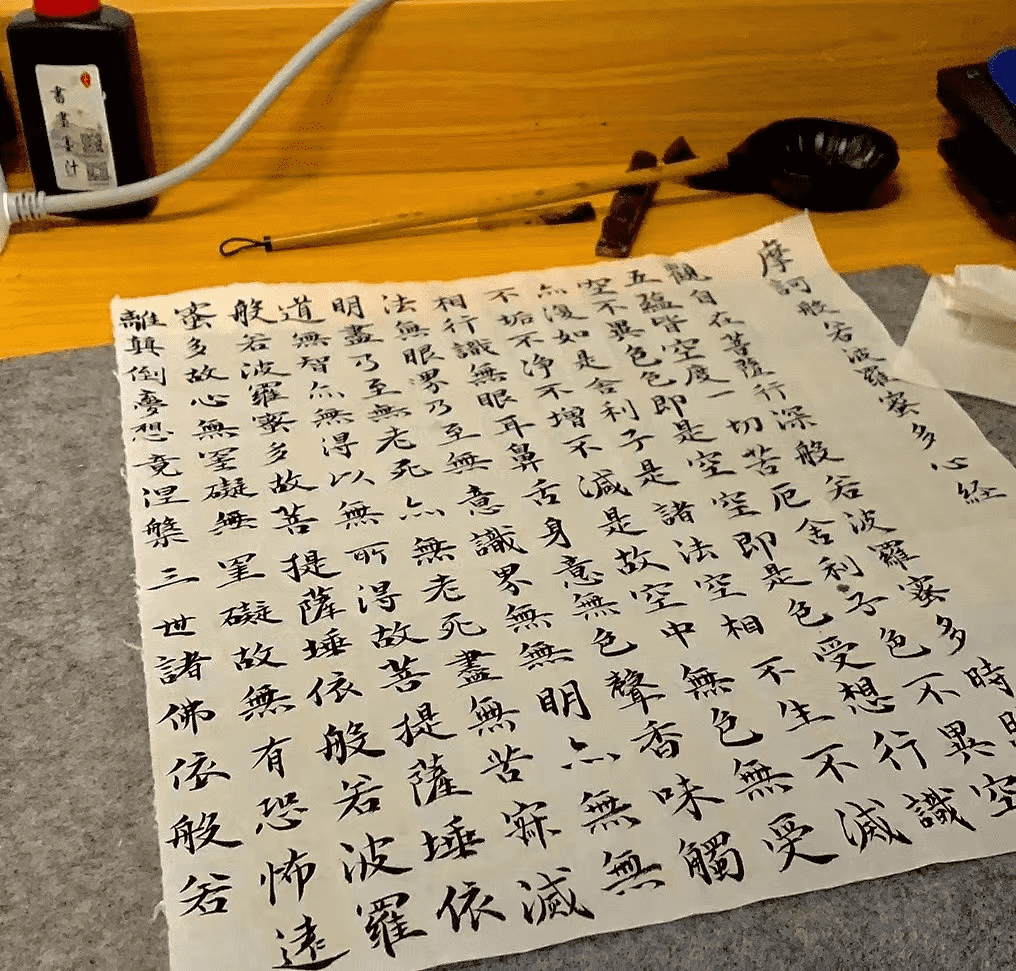 書畫墨汁
摩訶般若波羅蜜多心経
觀自在菩薩行深般若波羅蜜多時
五蘊皆空度一切苦厄舍利子色不異空
空不異色色即是空空即是色受想行識
亦復如是舍利子是諸法空相不生不滅
不垢不净不增不減是故空中無色無受
相行識無眼耳鼻舌身意無色聲香味觸
法無眼界乃至無意識界無無明亦無無
明盡乃至無老死亦無老死盡無苦寂滅
道無智亦無得以無所得故菩提薩埵依
般若波羅蜜多故菩提薩埵依般若波羅
蜜多故心無罣礙無罣礙故無有恐怖遠
離真倒夢想竟涅槃三世諸佛依般若